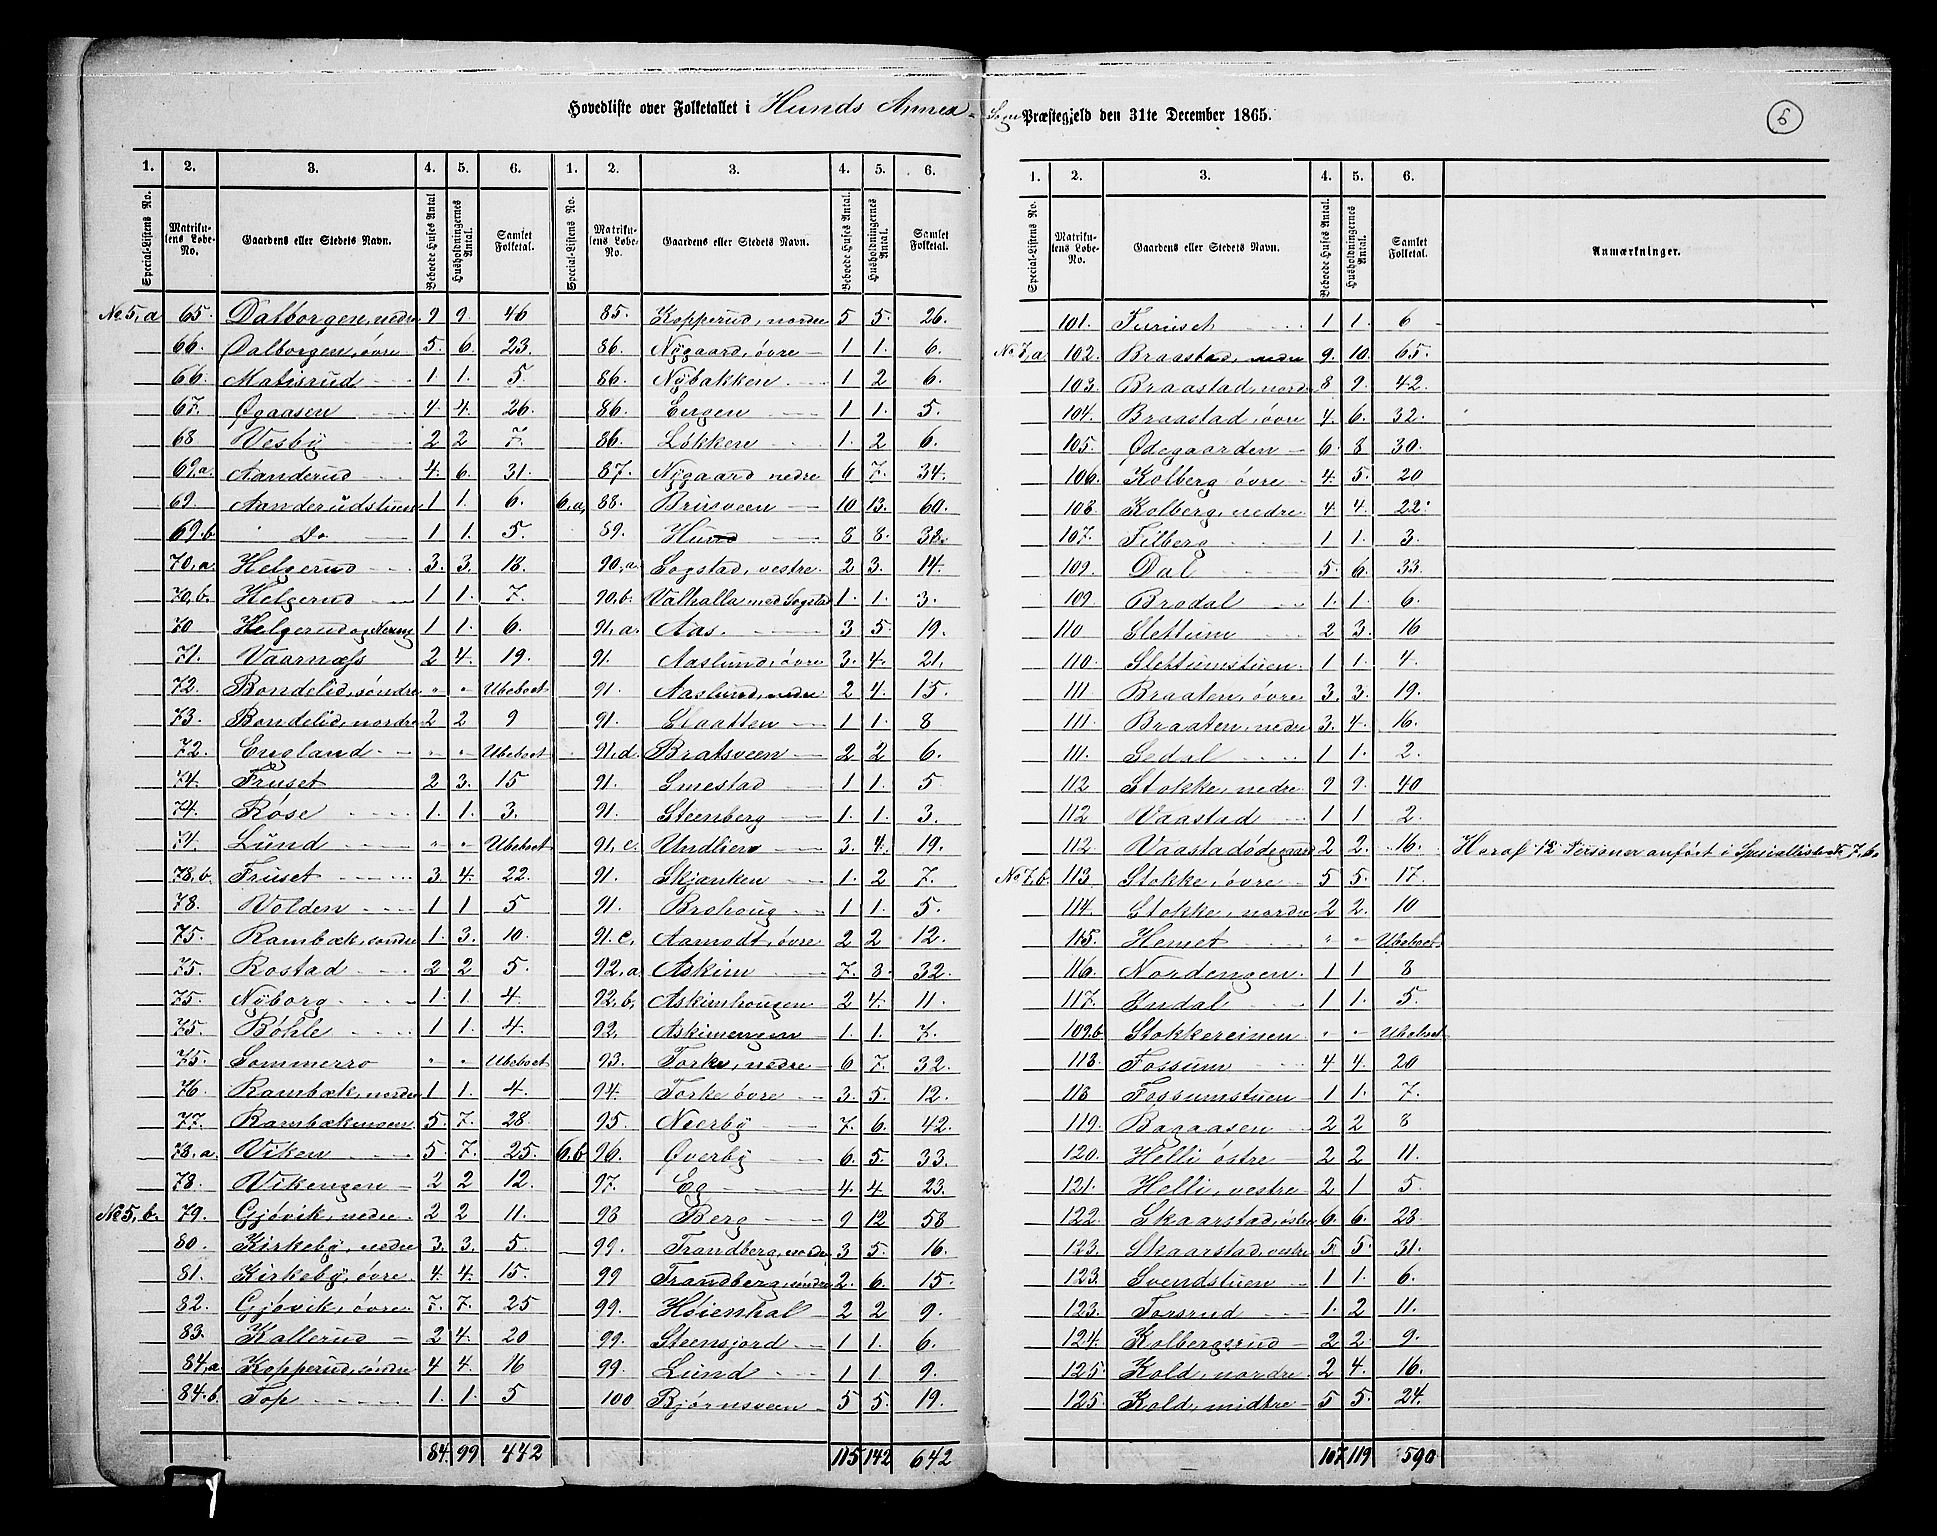 Hovedliste over Folketallet i Hunds Annex-Sogn Præstegjeld den 31te December 1865.
5
1. 2. 3. 4. 5. 6.
Special-Listens No. Matrikulens Løbe-No. Gaardens eller Stedets Navn. Beboede Huses Antal Husholdningernes Antal. Samlet Folketal.
No 5, a 65. Dalborgen, nedre 9 9 46
66. Dalborgen, øvre 5. 6. 23.
66. Matisrud 1. 1. 5.
67. Øgaasen 4. 4. 26.
68 Vesby 2 2 7.
69, a. Aanderud 4. 6. 31.
69. Aanderudstuen 1 1 6.
69. b Do 1 1. 5.
70, a. Helgerud 3. 3. 18.
70, b. Helgerud 1 1. 7.
70 Helgerud og Nereng 1 1. 6.
71. Vaarnæss 2 4. 19.
72. Bondelid, søndre " " Ubeboet
73. Bondelid, nordre 2 2 9
72. England " " Ubeboet
74. Fruset 2 3. 15
74. Røse 1. 1. 3.
74. Lund " " Ubeboet
78, b. Fruset 3. 4. 22.
78. Volden 1 1 5
75. Rambæk, søndre 1. 3. 10.
75. Rostad 2 2 5.
75. Nyborg 1. 1. 4.
75. Bøhle 1 1. 4.
75. Sommerro " " Ubeboet
76. Rambæk, nordre 1 1. 4.
77. Rambækengen 5. 7. 28.
78, a. Viken 5. 7. 25.
78. Vikengen 2 2 12.
No 5, b. 79. Gjøvik, nedre 2 2 11.
80. Kirkeby, nedre 3. 3. 5.
81. Kirkeby, øvre 4. 4. 15.
82. Gjøvik, øvre 7. 7. 25
83. Kallerud 3 4. 20
84, a Kopperud, søndre 4 4. 16
84. b Top 1. 1. 5
84. 99 442
1. 2. 3. 4. 5. 6.
Special-Listens No. Matrikulens Løbe-No. Gaardens eller Stedets Navn. Beboede Huses Antal. Husholdningernes Antal. Samlet Folketal.
85. Kopperud, nordre 5 5. 26.
86. Nygaard, øvre 1 1. 6.
86. Nybakken 1 2 6.
86. Engen 1 1. 5.
86. Løkken 1. 2 6.
87. Nygaard nedre 6 7. 34.
6, a, 88. Brusveen 10 13. 60.
89. Hund 8 8. 38.
90, a. Sogstad, vestre 2 3. 14.
90, b. Valhalla med Sogstad 1. 1. 3.
91, a. Aas. 3 5. 19.
91. Aaslund, øvre 3. 4. 21.
91. Aaslund, nedre 2 4. 15.
91. Slaatten 1 1. 8
91, d. Bratsveen 2 2 6.
91. Smestad 1 1. 5
91. Steenberg 1. 1. 3.
91, c. Undlien 3. 4. 19.
91. Skjanken 1. 2 7.
91. Brohoug 1 1. 5.
91. c. Aamodt, øvre 2 2 12.
92, a. Askim 7. 8. 32.
92, b, Askimhougen 2 4. 11.
92. Askimengen 1. 1. 7.
93. Torke, nedre 6 7. 32.
94. Torke øvre 3. 5. 12.
95. Nierby 7. 6. 42.
6. b 96. Øverby 6. 5. 33.
97. Eg 4. 4 23.
98 Berg 9 12 58
99. Trandberg, nordre 3 5. 16.
99 Trandberg, søndre 2. 6. 15.
99. Høienhal 2 2 9.
99. Steensjord 1 1. 6.
99. Lund 1 1. 9.
100 Bjørnsveen 5 5. 19.
115 142 642
1. 2. 3. 4. 5. 6.
Special-Listens No. Matrikulens Løbe-No. Gaardens eller Stedets Navn. Beboede Huses Antal. Husholdningernes Antal. Samlet Folketal. Anmærkninger.
101. Furuset 1 1. 6
No 7, a 102. Braastad, nedre 9. 10. 65.
103. Braastad, nordre 8 9. 42.
104. Braastad, øvre 4. 6. 32.
105. Ødegaarden 6. 8 30.
106. Kolberg øvre 4. 5. 20
108. Kolberg, nedre 4 4. 22.
107. Filberg 1 1. 3.
109. Dal 5. 6. 33.
109. Brodal 1. 1. 6.
110 Slettum 2 3. 16
110. Slettumstuen 1 1. 4.
111. Braaten, øvre 3. 3. 19.
111. Braaten, nedre 3. 4. 16.
111. Sedal 1 1. 2.
112 Stokke, nedre 9 9. 40
112 Vaastad 1 1 2.
112 Vaastadødegaard 2 2. 16. Heraf 12 Personer anført i Speciallisten No 7, b.
No 7, b. 113 Stokke, øvre 5 5. 17.
114. Stokke, nordre 2 2. 10
115. Hemet " " Ubeboet
116. Nordengen 1 1 8
117. Endal 1 1. 5.
109. b Stokkereinen " " Ubeboet
118. Fossum 4 4. 20
118 Fossumstuen 1 1. 7.
119. Bagaasen 2 2 8
120. Helli østre 2 2 11.
121. Helli, vestre 2 1 5.
122. Skaarstad, østre 6. 6. 28.
123. Skaarstad, vestre 5. 5. 31.
123. Svendstuen 1 1. 6.
123. Forsrud 1. 2 11.
124. Kolbergsrud 2 2. 9.
125. Kold, nordre 2 4. 16.
125. Kold, midtre 5 5. 24.
107 119 590